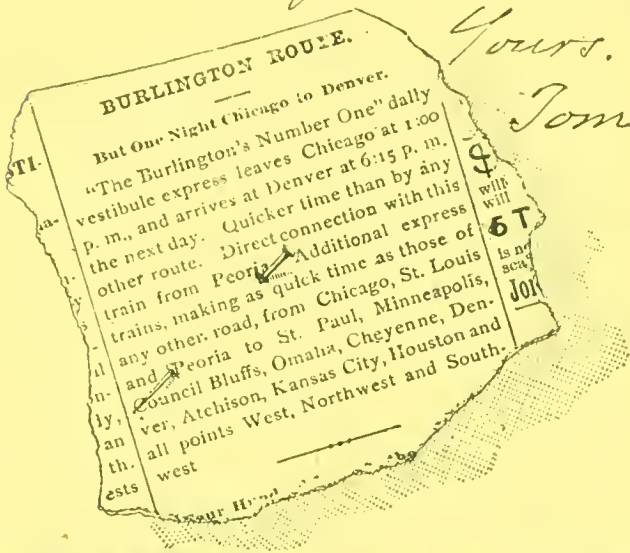 Yours.
Tom
BURLINGTON ROUTE.
But One Night Chicago to Denver.
"The Burlington's Number One" daily
vestibule express leaves Chicago at 1:00
p. m., and arrives at Denver at 6:15 p. m.
the next day. Quicker time than by any
other route. Direct connection with this
train from Peoria. Additional express
trains, making as quick time as those of
any other road, from Chicago, St. Louis
and Peoria to St. Paul, Minneapolis,
Council Bluffs, Omaha, Cheyenne, Den-
ver, Atchison, Kansas City, Houston and
all points West, Northwest and South-
west
Four
OTI-
a-
il
n-
ly,
an
th.
ests
$
will
will
6 T
is n
sea
JO